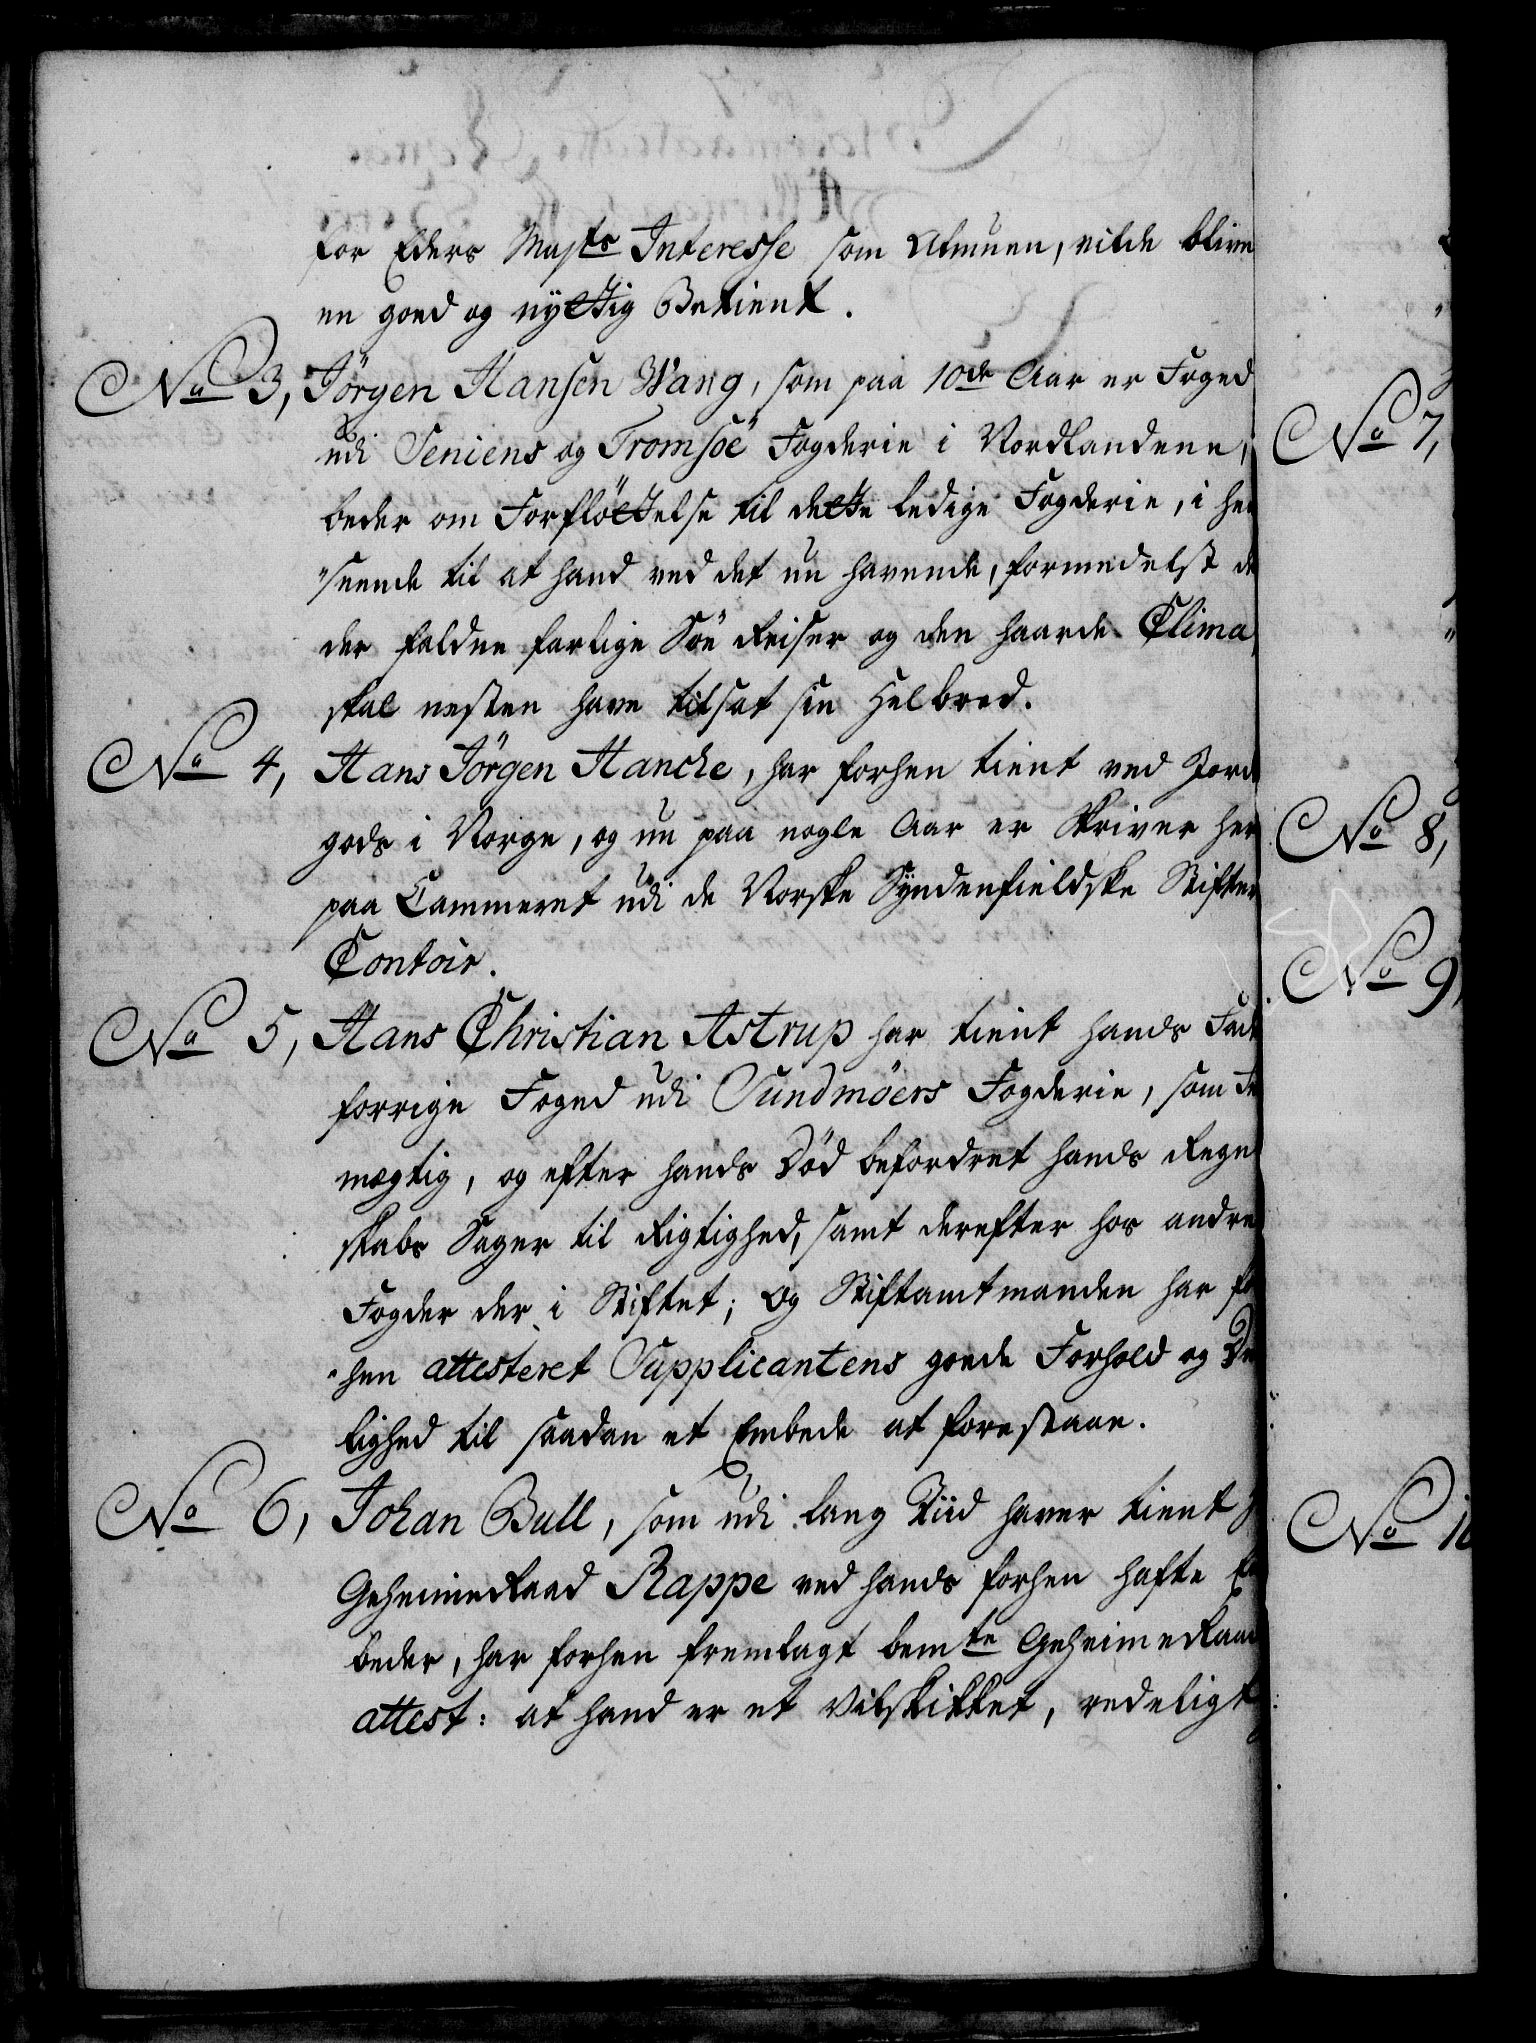 for Eders Maj:ts Interesse som Almuen, vilde blive
en goed og nyttig Betient.
No 3, Jörgen Hansen Wang, som paa 10de Aar er Foged
udi Seniens og Tromsöe Fogderie i Nordlandene,
beder om Forflöttelse til dette ledige Fogderie, i hen
"seende til at hand ved det nu havende, formedelst de
der faldne farlige Söe Reiser og den haarde Clima,
skal nesten have tilsat sin Helbred.
No 4, Hans Jörgen Hancke, har forhen tient ved Jorde
gods i Norge, og nu paa nogle Aar er Skriver her
paa Cammeret udi de Norske Syndenfieldske Stifters
Contoir.
No 5, Hans Christian Astrup har tient hands Fader
forrige Foged udi Sundmöers Fogderie, som Fuld
mægtig, og efter hands Död befordret hands Regn
skabs Sager til Rigtighed, samt derefter hos andre
Fogder der i Stiftet; Og Stiftamtmanden har for
"hen attesteret Supplicantens goede Forhold og Due
lighed til saadan et Embede at forestaae.
No 6, Johan Bull, som udi lang Tiid haver tient
GeheimeRaad Rappe ved hands forhen hafte Em
beder, har forhen fremlagt bemte GeheimeRaads
attest: at hand er et vilskikket, redeligt
No 7,
No 8,
No 9,
No 10